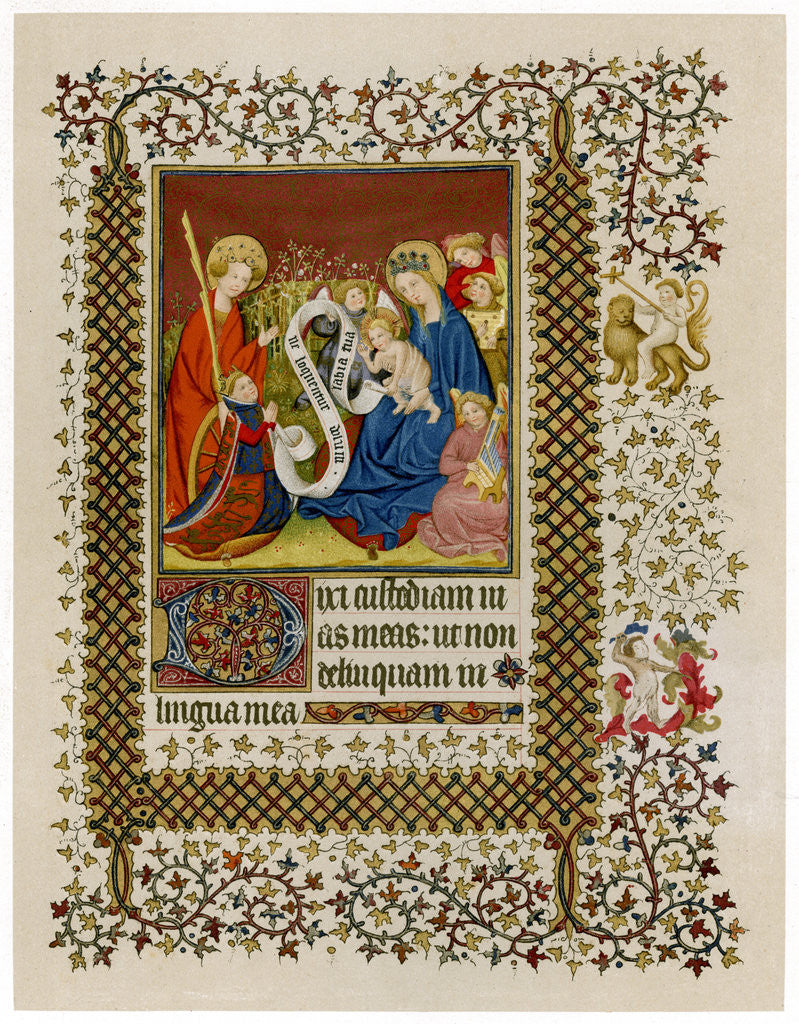 labia tua
ne loquentur
Dixi custodiam ui
as meas: ut non
delinquam in
lingua mea